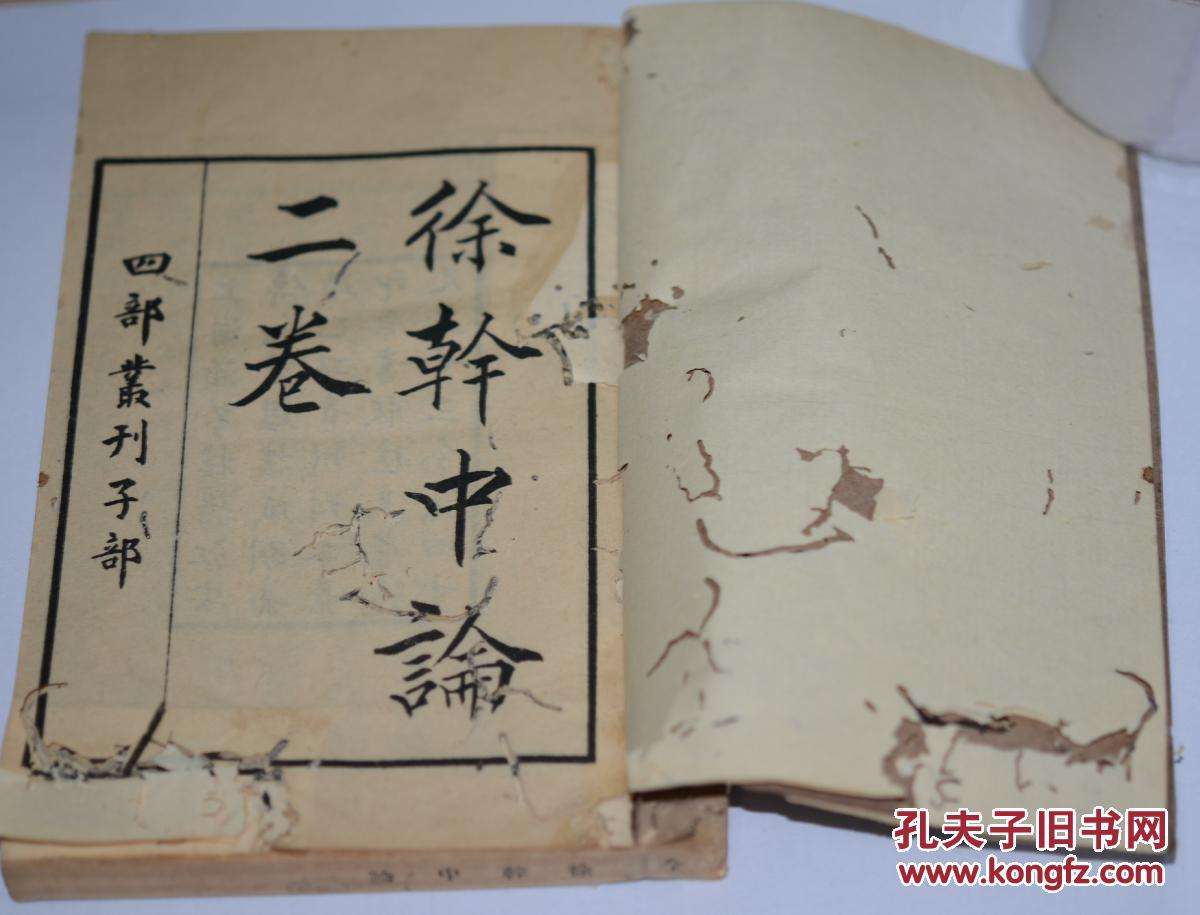 徐幹中論
二卷
四部叢刊子部
徐幹中論
孔夫子旧书网
www.kongfz.com